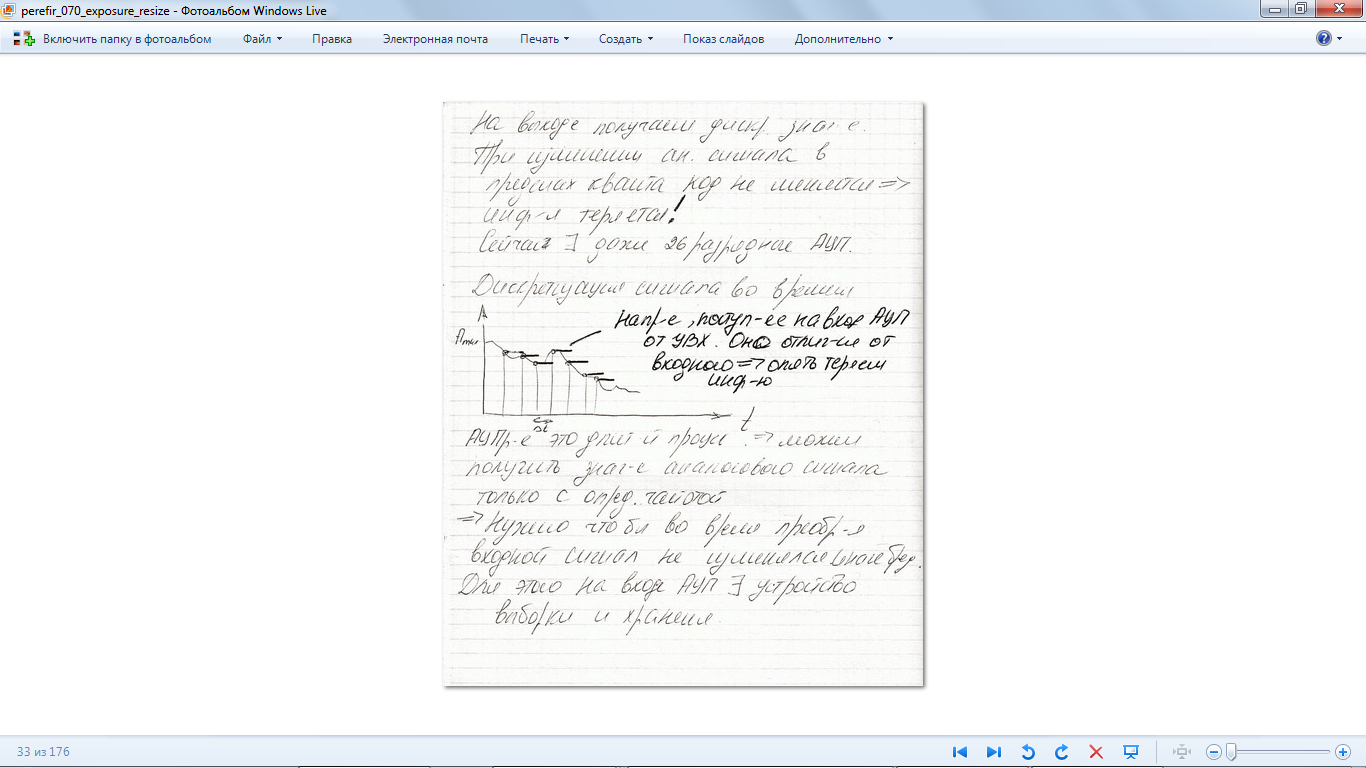 perefir_070_exposure_resize - Фотоальбом Windows Live
Включить папку в фотоальбом Файл Правка Электронная почта Печать Создать Показ слайдов Дополнительно
На выходе получаем дискр. знач-е.
При изменении ан. сигнала в
пределах кванта код не меняется =>
инф-я теряется!
Сейчас ∃ даже 26 разрядные АЦП.
Дискретизация сигнала во времени
A
Напр-е, поступ-ее на вход АЦП
от УВХ. Оно отлич-ся от
входного => опять теряем
инф-ю
t
Δt
АЦПр-е это длит й процес. => можем
получить знач-е аналогового сигнала
только с опред. частотой
=> Нужно что бы во время преобр-я
входной сигнал не изменялся иначе
Для этого на входе АЦП ∃ устройство
выборки и хранения.
33 из 176